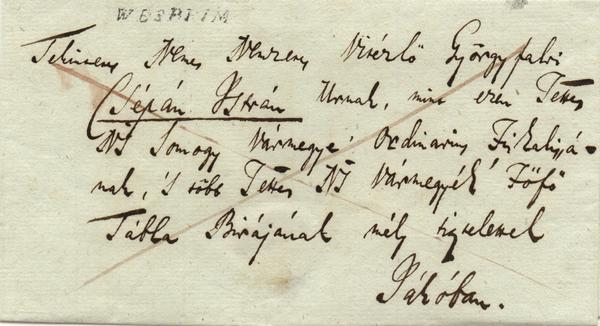 WESPRIM
Tekintetes Nemes Nemzetes Vitézlő Györgyfalvi
Csépán István Urnak, mint ezen Tettes
NS Somogy Vármegye' Ordinarius Fiskalijjá-
nak, 's több Tettes NS Vármegyék' Főfő
Tábla Birájának mély tisztelettel
Jákóban.